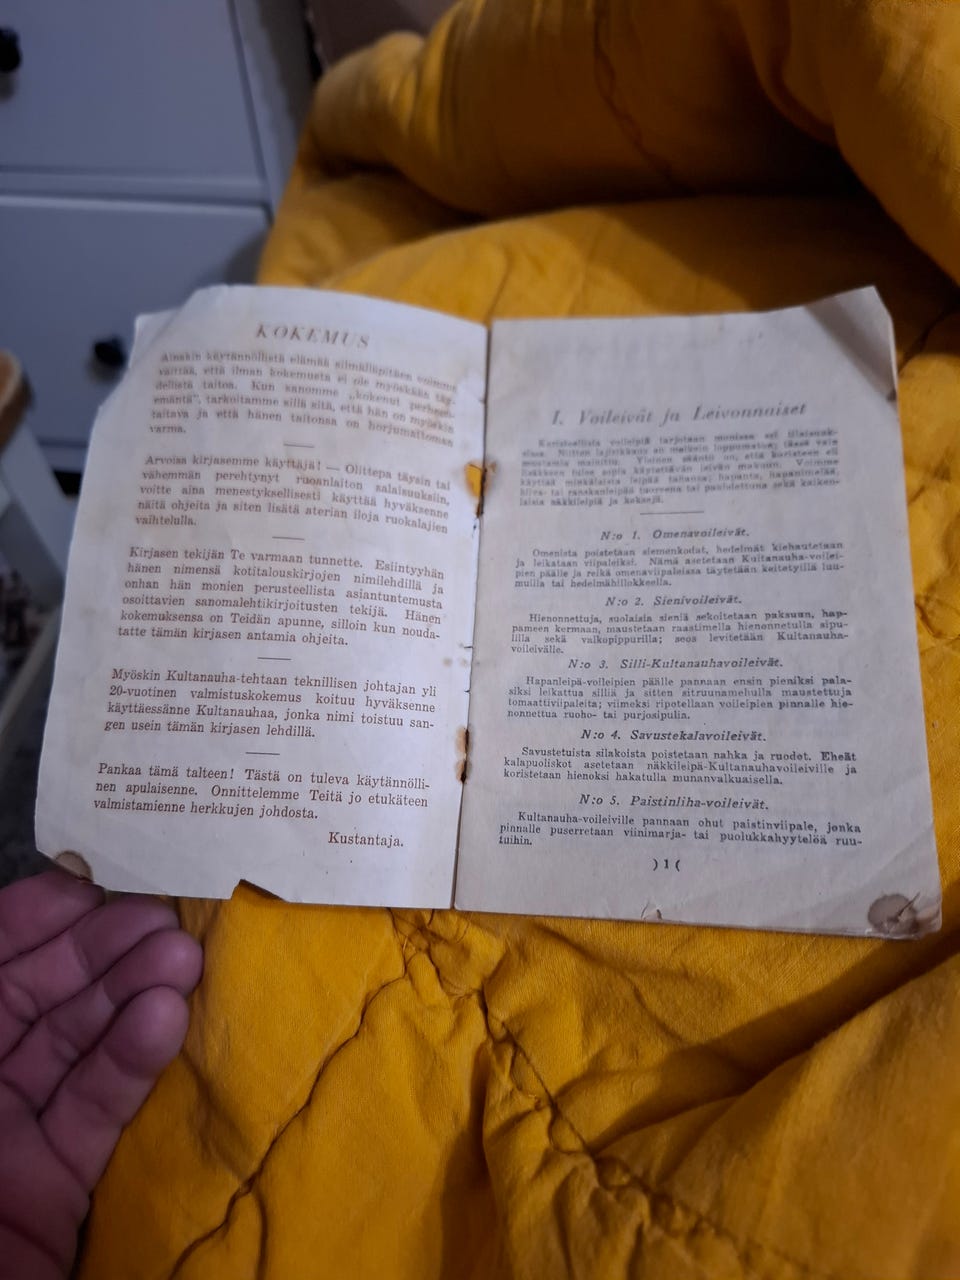 KOKEMUS
Ainakin käytännöllistä elämää silmälläpitäen voimme
väittää, että ilman kokemusta ei ole myöskään täy-
dellistä taitoa. Kun sanomme „kokenut perheen-
emäntä”, tarkoitamme sillä sitä, että hän on myöskin
taitava ja että hänen taitonsa on horjumattoman
varma.
Arvoisa kirjasemme käyttäjä! — Olittepa täysin tai
vähemmän perehtynyt ruoanlaiton salaisuuksiin,
voitte aina menestyksellisesti käyttää hyväksenne
näitä ohjeita ja siten lisätä aterian iloja ruokalajien
vaihtelulla.
Kirjasen tekijän Te varmaan tunnette. Esiintyyhän
hänen nimensä kotitalouskirjojen nimilehdillä ja
onhan hän monien perusteellista asiantuntemusta
osoittavien sanomalehtikirjoitusten tekijä. Hänen
kokemuksensa on Teidän apunne, silloin kun nouda-
tatte tämän kirjasen antamia ohjeita.
Myöskin Kultanauha-tehtaan teknillisen johtajan yli
20-vuotinen valmistuskokemus koituu hyväksenne
käyttäessänne Kultanauhaa, jonka nimi toistuu san-
gen usein tämän kirjasen lehdillä.
Pankaa tämä talteen! Tästä on tuleva käytännölli-
nen apulaisenne. Onnittelemme Teitä jo etukäteen
valmistamienne herkkujen johdosta.
Kustantaja.
I. Voileivät ja Leivonnaiset
Koristeellisia voileipiä tarjotaan monissa eri tilaisuuk-
sissa. Niitten lajirikkaus on melkein loppumaton; tässä vain
muutamia mainittu. Yleinen sääntö on, että koristeen eli
lisäkkeen tulee sopia käytettävän leivän makuun. Voimme
käyttää minkälaista leipää tahansa; hapanta, hapanimelää,
hiiva- tai ranskanleipää tuoreena tai paahdettuna sekä kaiken-
laisia näkkileipiä ja keksejä.
N:o 1. Omenavoileivät.
Omenista poistetaan siemenkodat, hedelmät kiehautetaan
ja leikataan viipaleiksi. Nämä asetetaan Kultanauha-voilei-
pien päälle ja reikä omenaviipaleissa täytetään keitetyillä luu-
muilla tai hedelmähillokkeella.
N:o 2. Sienivoileivät.
Hienonnettuja, suolaisia sieniä sekoitetaan paksuun, hap-
pameen kermaan, maustetaan raastimella hienonnetulla sipu-
lilla sekä valkopippurilla; seos levitetään Kultanauha-
voileivälle.
N:o 3. Silli-Kultanauhavoileivät.
Hapanleipä-voileipien päälle pannaan ensin pieniksi pala-
siksi leikattua silliä ja sitten sitruunamehulla maustettuja
tomaattiviipaleita; viimeksi ripotellaan voileipien pinnalle hie-
nonnettua ruoho- tai purjosipulia.
N:o 4. Savustekalavoileivät.
Savustetuista silakoista poistetaan nahka ja ruodot. Eheät
kalapuoliskot asetetaan näkkileipä-Kultanauhavoileiville ja
koristetaan hienoksi hakatulla munanvalkuaisella.
N:o 5. Paistinliha-voileivät.
Kultanauha-voileiville pannaan ohut paistinviipale, jonka
pinnalle puserretaan viinimarja- tai puolukkahyytelöä ruu-
tuihin.
) 1 (